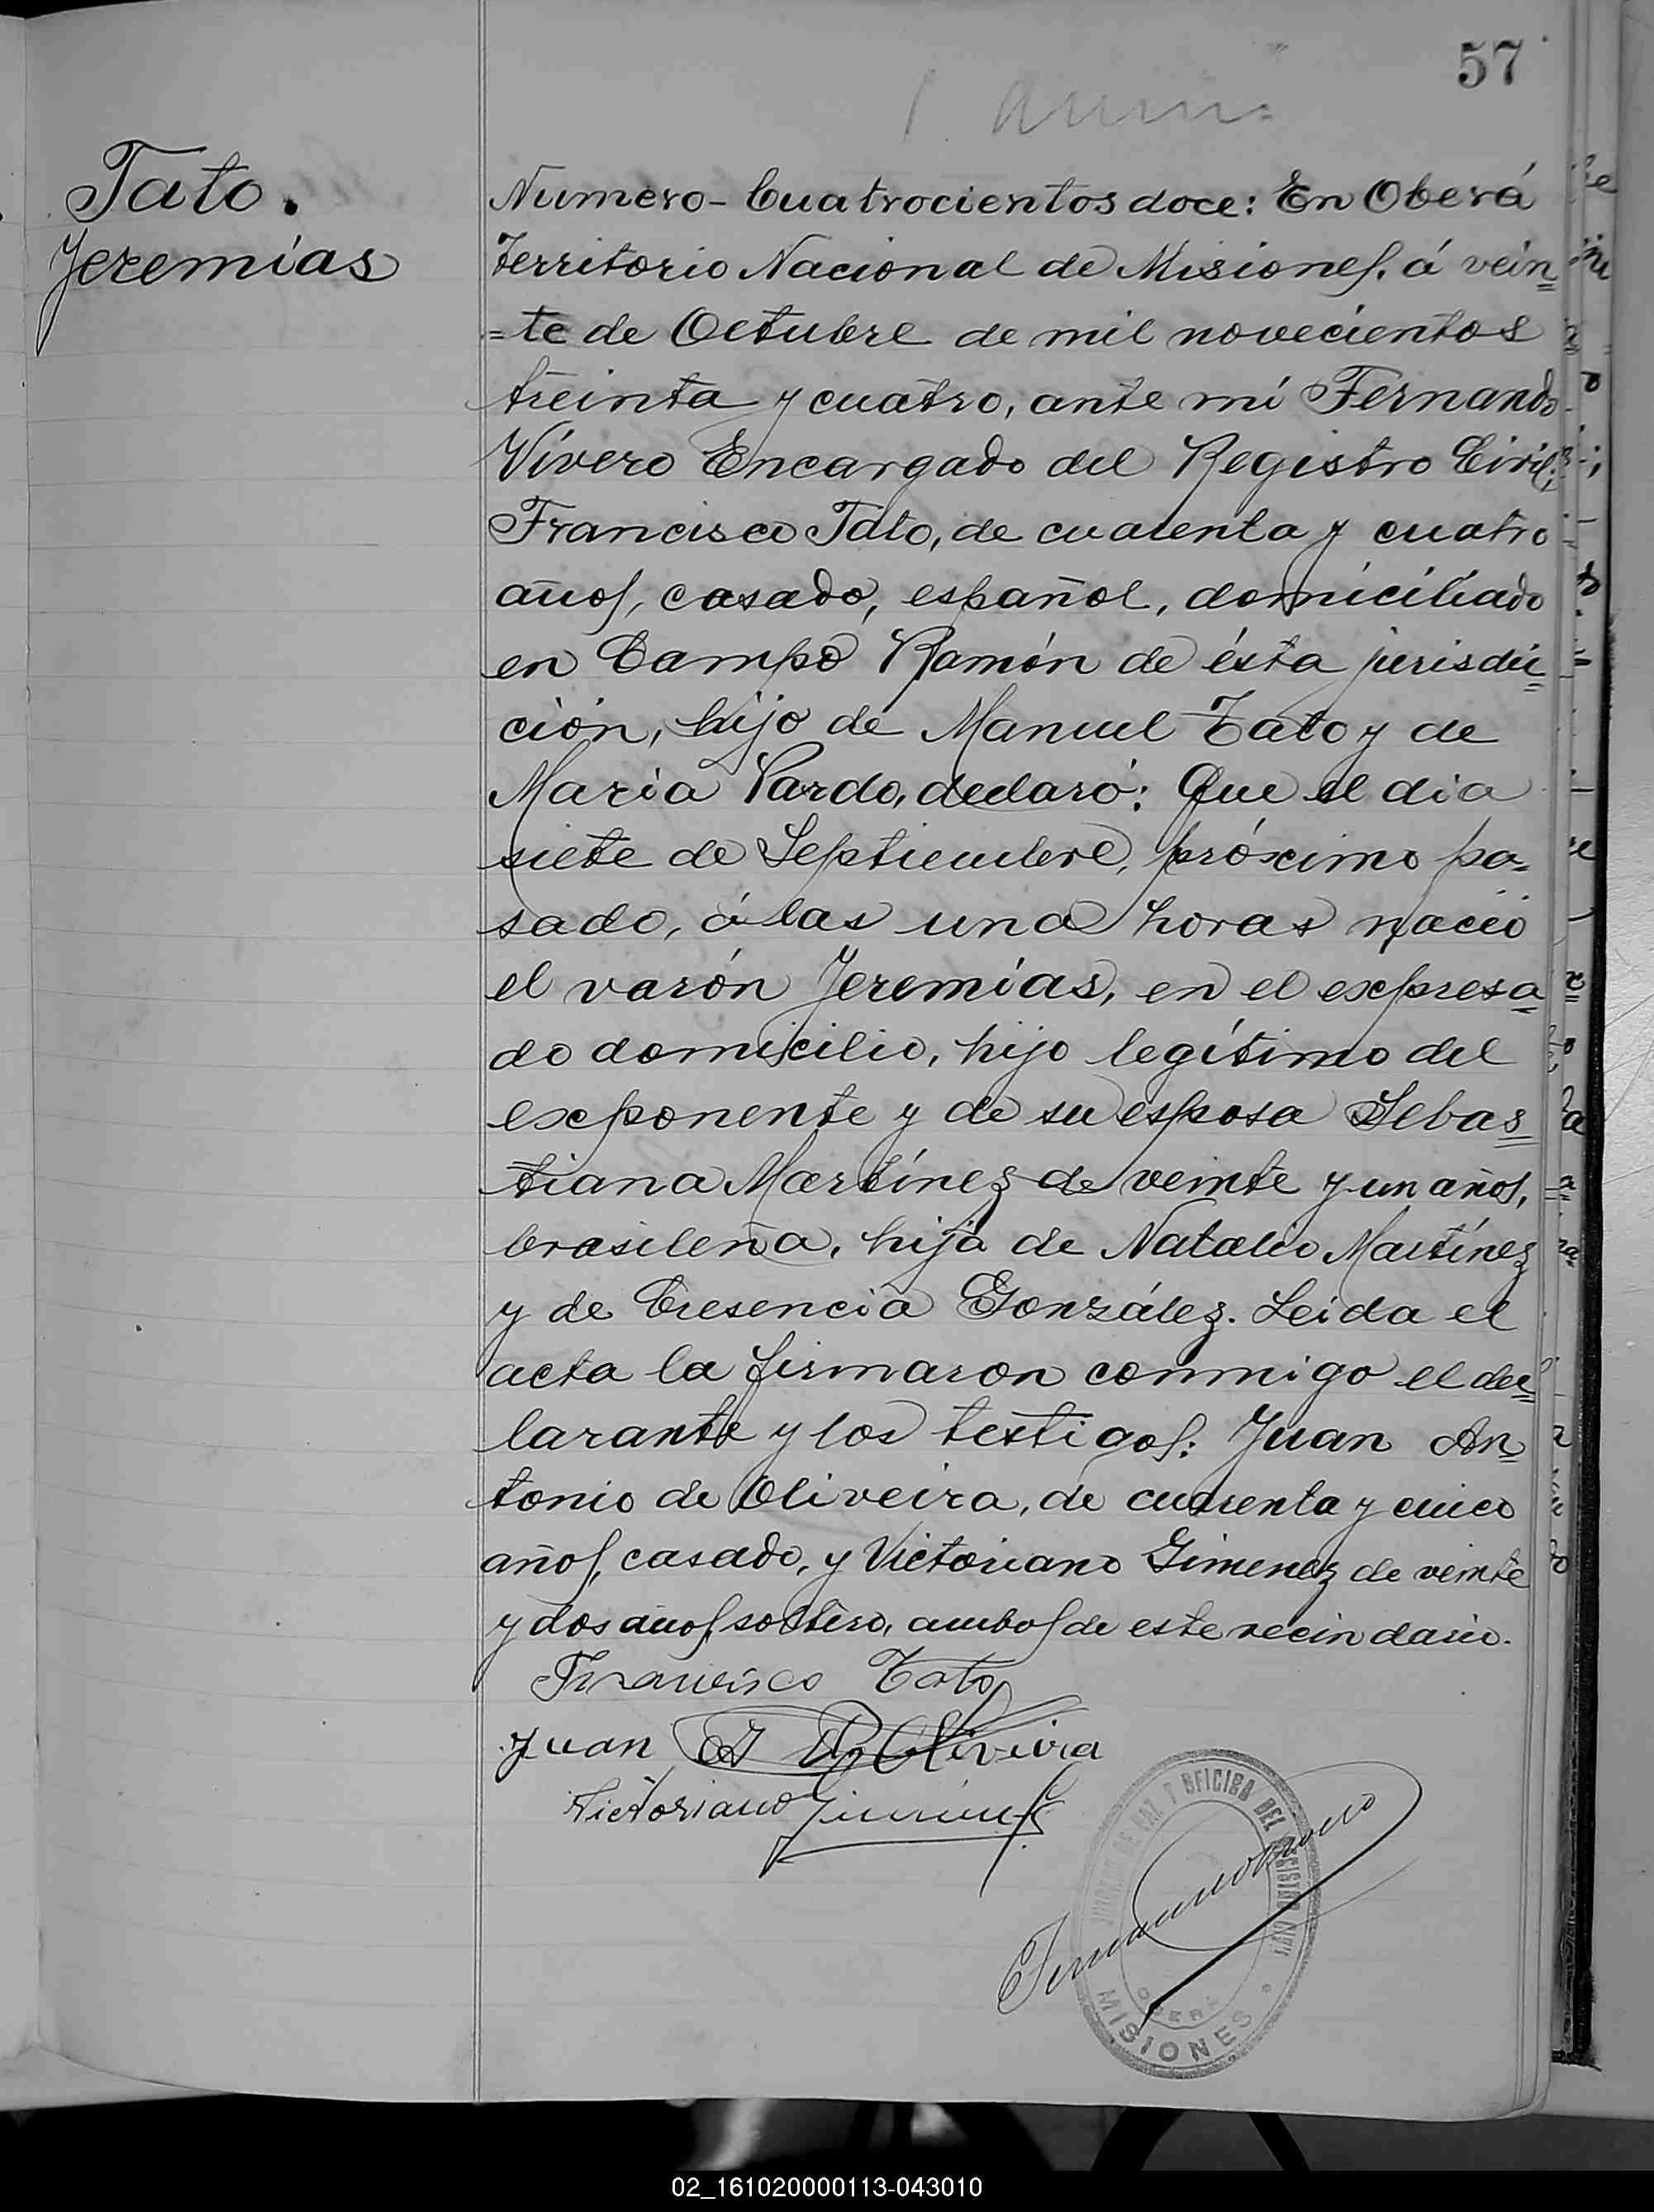 57
Tato.
Jeremías
Numero-Cuatrocientos doce: En Oberá
Territorio Nacional de Misiones. á vein
=te de Octubre de mil novecientos
treinta y cuatro, ante mí Fernando
Vívero Encargado del Registro Civil;
Francisco Tato, de cuarenta y cuatro
años, casado, español, domiciliado
en Campo Ramón de ésta jurisdic
ción, hijo de Manuel Tato y de
María Pardo, declaró: Que el dia
siete de Septiembre, próximo pa-
sado, á las una horas nació
el varón Jeremías, en el expresa
do domicilio, hijo legítimo del
exponente y de su esposa Sebas
tiana Martínez de veinte y un años,
brasileña, hija de Natalio Martínez
y de Cresencia González. Leida el
acta la firmaron conmigo el dec
larante y los testigos: Juan An
tonio de Oliveira, de cuarenta y cinco
años, casado, y Victoriano Gimenez de veinte
y dos años, soltero, ambos de este vecindario.
Francisco Tato
Juan A D Olivira
Victoriano Jimenez
OFICINA DEL REGISTRO CIVIL
OBERÁ
MISIONES
02_161020000113-043010